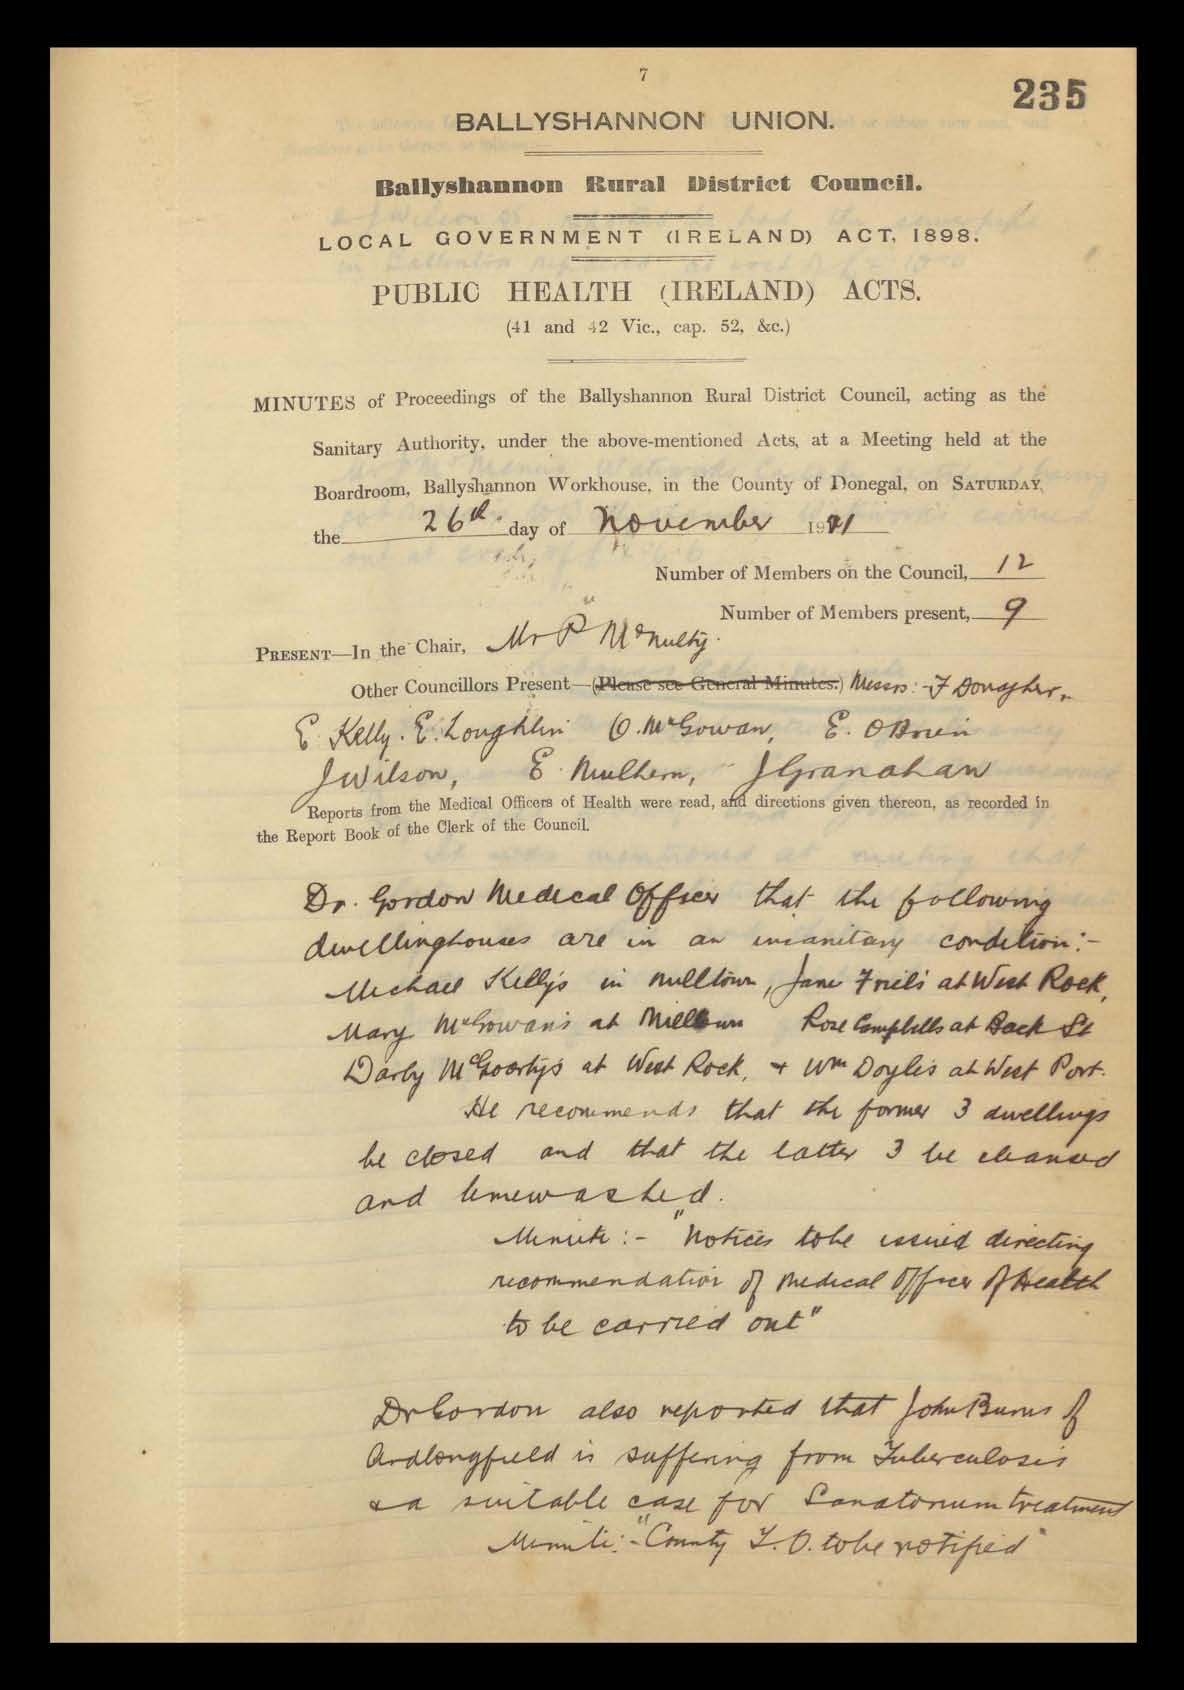 7
235
BALLYSHANNON UNION.
Ballyshannon Rural District Council.
LOCAL GOVERNMENT (IRELAND) ACT, 1898.
PUBLIC HEALTH (IRELAND) ACTS.
(41 and 42 Vic., cap. 52, &c.)
MINUTES of Proceedings of the Ballyshannon Rural District Council, acting as the
Sanitary Authority, under the above-mentioned Acts, at a Meeting held at the
Boardroom, Ballyshannon Workhouse, in the County of Donegal, on SATURDAY,
the 26th. day of November 1921
Number of Members on the Council, 12
Number of Members present, 9
PRESENT—In the Chair, Mr P McNulty.
Other Councillors Present—(Please see General Minutes.) Messrs:- F Donagher,
E Kelly. E. Loughlin O. McGowan, E. OBrien
J Wilson, E. Mulhern, J Granahan
Reports from the Medical Officers of Health were read, and directions given thereon, as recorded in
the Report Book of the Clerk of the Council.
Dr. Gordon Medical Officer that the following
dwellinghouses are in an insanitary condition:-
Michael Kelly's in Milltown, Jane Friel's at West Rock,
Mary McGowan's at Milltown Rose Campbells at Back St
Darby McGoorty's at West Rock, + Wm Doyle's at West Port.
He recommends that the former 3 dwellings
be closed and that the latter 3 be cleansed
and limewashed.
Minute:- "Notices to be issued directing
recommendation of Medical Officer of Health
to be carried out"
Dr Gordon also reported that John Burns of
Ardlongfield is suffering from Tuberculosis
& a suitable case for Sanatorium treatment
Minute:- "County T.O. to be notified"